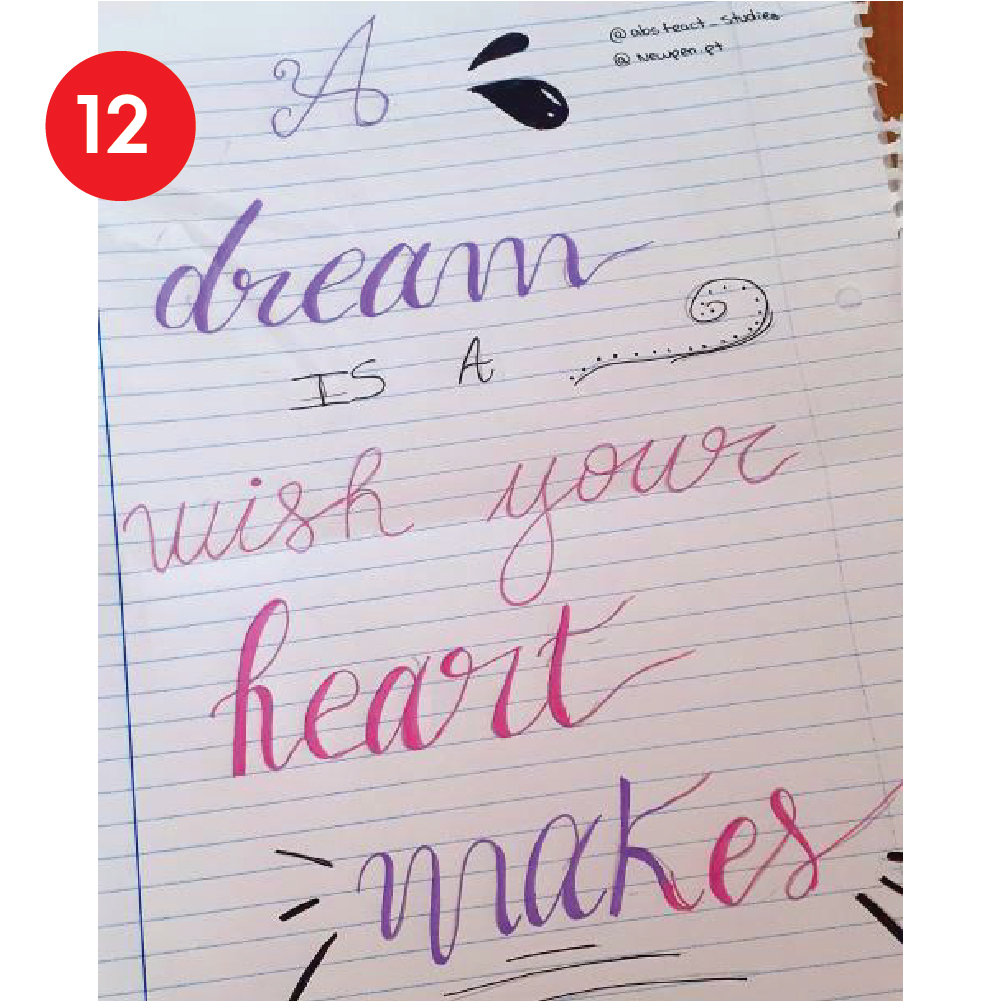 12
@abstract_studies
@Newpen.pt
A
dream
IS A
wish your
heart
makes